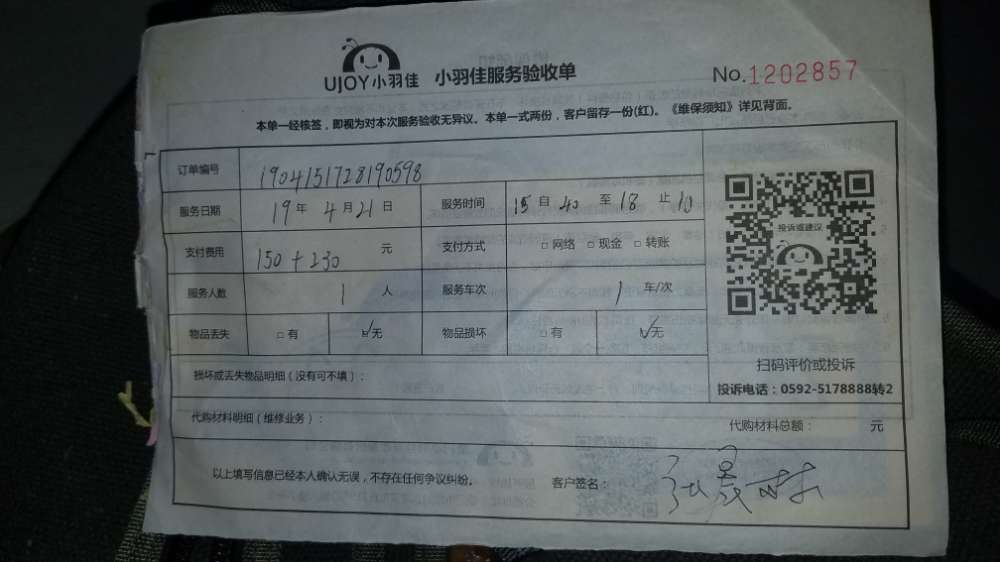 UJOY小羽佳 小羽佳服务验收单 No.1202857
本单一经核签，即视为对本次服务验收无异议。本单一式两份，客户留存一份(红)。《维保须知》详见背面。
订单编号 1904151728190598
服务日期 19年4月21日 服务时间 15自40至18止10
投诉或建议
支付费用 150+230 元 支付方式 □网络 □现金 □转账
服务人数 1人 服务车次 1车/次
物品丢失 □有 ☑无 物品损坏 □有 ☑无
扫码评价或投诉
损坏或丢失物品明细（没有可不填）：
投诉电话：0592-5178888转2
代购材料明细（维修业务）： 代购材料总额： 元
以上填写信息已经本人确认无误，不存在任何争议纠纷。 客户签名：